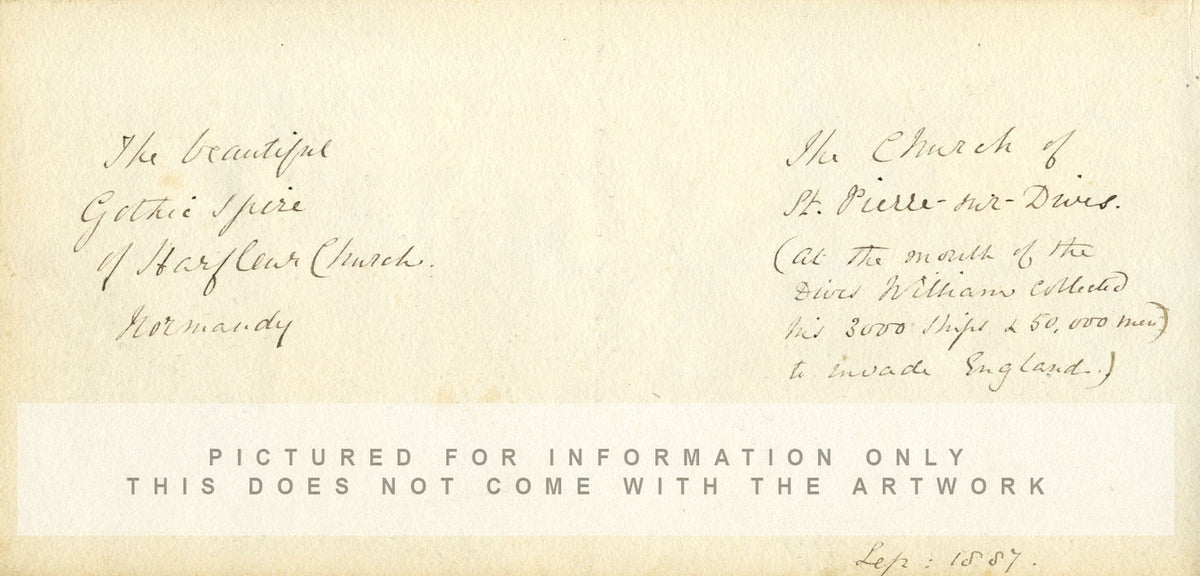 The beautiful
Gothic Spire
of Harfleur Church.
Normandy
The Church of
St. Pierre-sur-Dives.
(at the mouth of the
Dives William collected
his 3000 ships & 50,000 men)
to invade England.)
PICTURED FOR INFORMATION ONLY
THIS DOES NOT COME WITH THE ARTWORK
Sep: 1887.